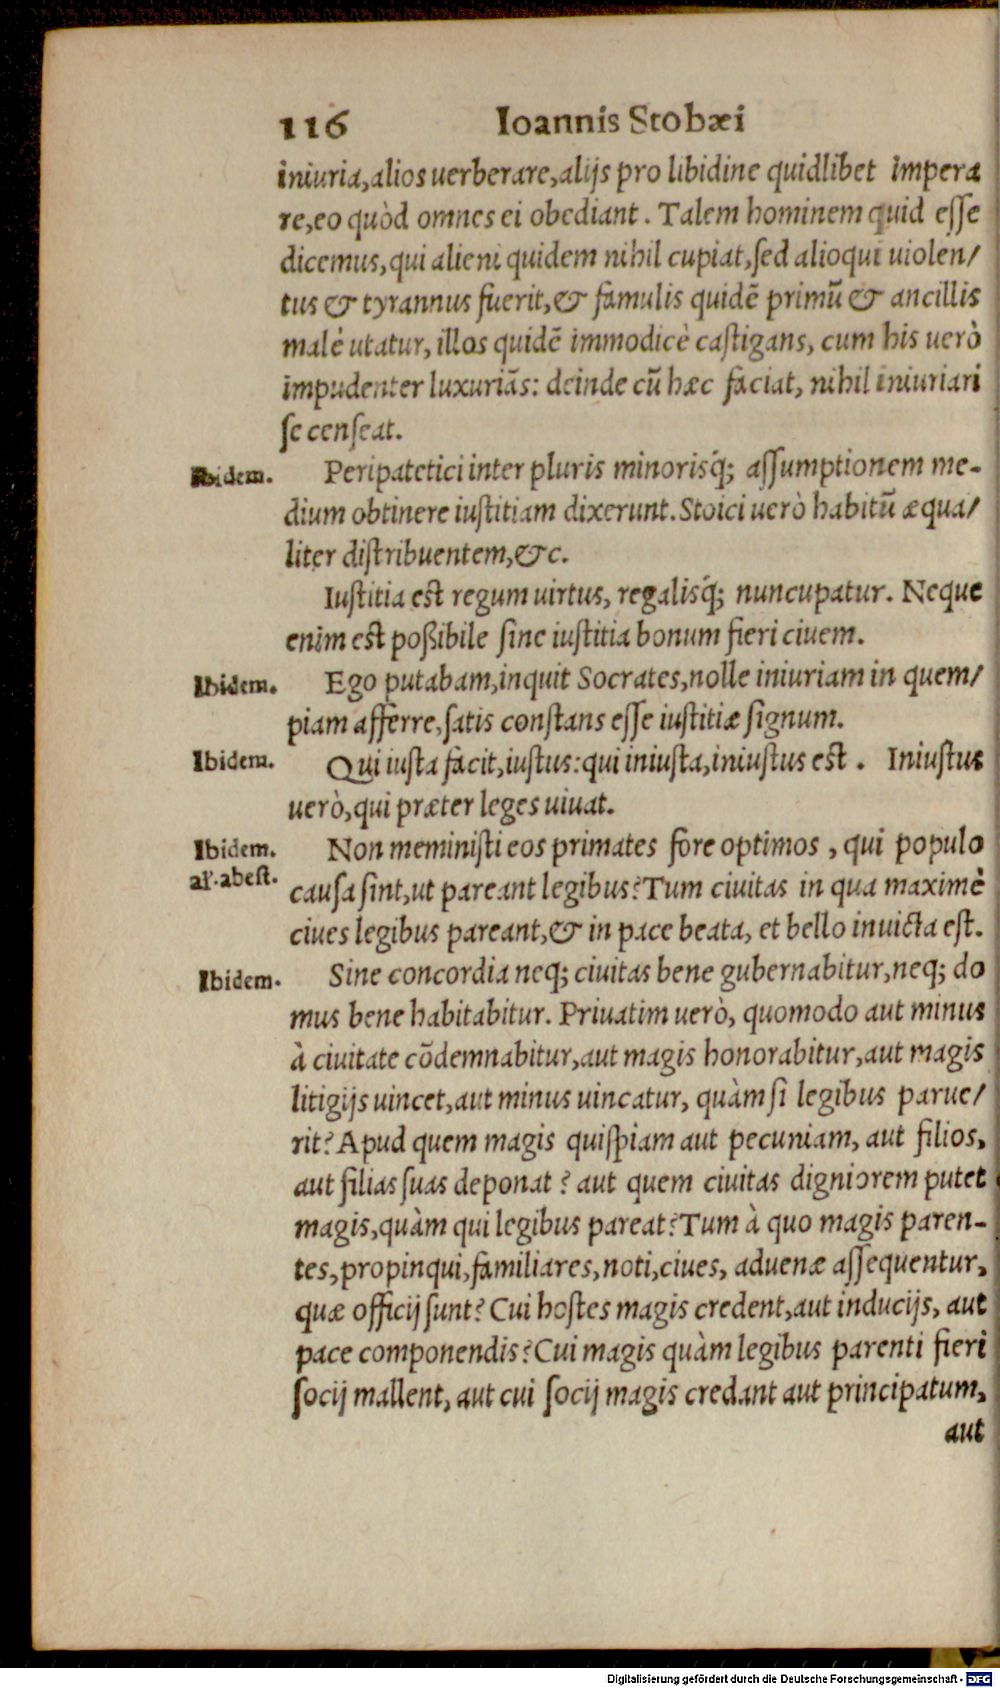 116 Ioannis Stobæi
iniuria,alios uerberare,alijs pro libidine quidlibet impera
re,eo quòd omnes ei obediant. Talem hominem quid eſſe
dicemus,qui alieni quidem nihil cupiat,ſed alioqui uiolen/
tus & tyrannus fuerit,& famulis quidẽ primũ & ancillis
malè utatur, illos quidẽ immodicè caſtigans, cum his uerò
impudenter luxuriãs: deinde cũ hæc faciat, nihil iniuriari
ſe cenſeat.
Ibidem. Peripatetici inter pluris minorisq́; aſſumptionem me-
dium obtinere iuſtitiam dixerunt. Stoici uerò habitũ æqua/
liter diſtribuentem,&c.
Iuſtitia est regum uirtus, regalisq́; nuncupatur. Neque
enim est poßibile ſine iuſtitia bonum fieri ciuem.
Ibidem. Ego putabam,inquit Socrates,nolle iniuriam in quem/
piam afferre,ſatis conſtans eſſe iuſtitiæ ſignum.
Ibidem. Qui iuſta facit,iuſtus:qui iniuſta,iniuſtus est. Iniuſtus
uerò,qui præter leges uiuat.
Ibidem. Non meminiſti eos primates fore optimos, qui populo
al'.abest. cauſa ſint,ut pareant legibus? Tum ciuitas in qua maximè
ciues legibus pareant,& in pace beata, et bello inuicta eſt.
Ibidem. Sine concordia neq; ciuitas bene gubernabitur,neq; do
mus bene habitabitur. Priuatim uerò, quomodo aut minus
à ciuitate cõdemnabitur,aut magis honorabitur,aut magis
litigijs uincet,aut minus uincatur, quàm ſi legibus parue/
rit? Apud quem magis quiſpiam aut pecuniam, aut filios,
aut filias ſuas deponat? aut quem ciuitas digniorem putet
magis,quàm qui legibus pareat? Tum à quo magis paren-
tes,propinqui,familiares,noti,ciues, aduenæ aſſequentur,
quæ officij ſunt? Cui hoſtes magis credent,aut inducijs, aut
pace componendis? Cui magis quàm legibus parenti fieri
ſocij mallent, aut cui ſocij magis credant aut principatum,
aut
Digitalisierung gefördert durch die Deutsche Forschungsgemeinschaft - DFG